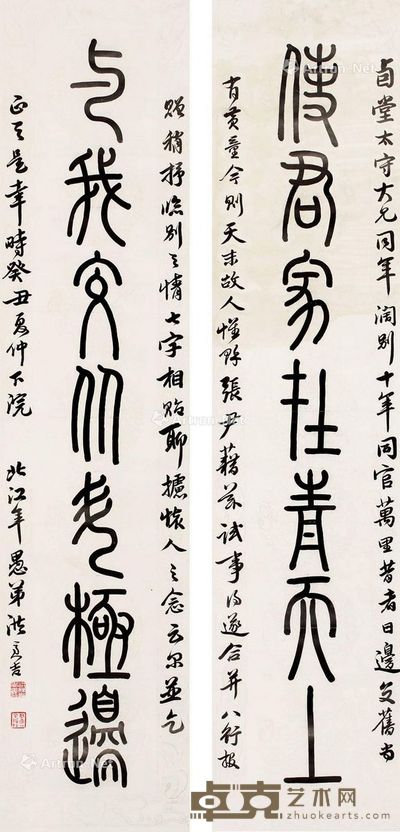 使君家在青天上
与我交從老極邊
卣堂太守大兄同年 闊別十年 同官萬里 昔者日邊交舊 尚
有黃童 今則天末故人 惟賒張尹 藉茲試事 得遂合并 八行報
贶 稍抒臨別之情 七字相貽 聊攄懷人之念云尔 並乞
正之是幸 時癸丑夏仲下院 北江年愚弟洪亮吉
Artron.Net
卓克艺术网
www.zhuokearts.com